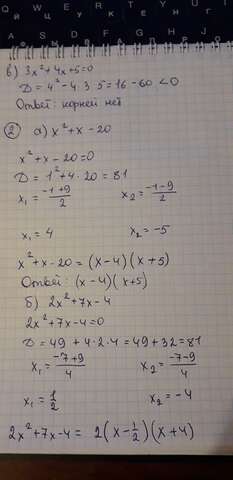 в) 3x²+4x+5=0
D = 4²-4·3·5=16-60 <0
Ответ: корней нет
② а) x²+x-20
x²+x-20=0
D = 1²+4·20=81
x₁ = (-1+9)/2 x₂ = (-1-9)/2
x₁ = 4 x₂ = -5
x²+x-20 = (x-4)(x+5)
Ответ: (x-4)(x+5)
б) 2x²+7x-4
2x²+7x-4=0
D = 49+4·2·4=49+32=81
x₁ = (-7+9)/4 x₂ = (-7-9)/4
x₁ = 1/2 x₂ = -4
2x²+7x-4 = 2(x-1/2)(x+4)